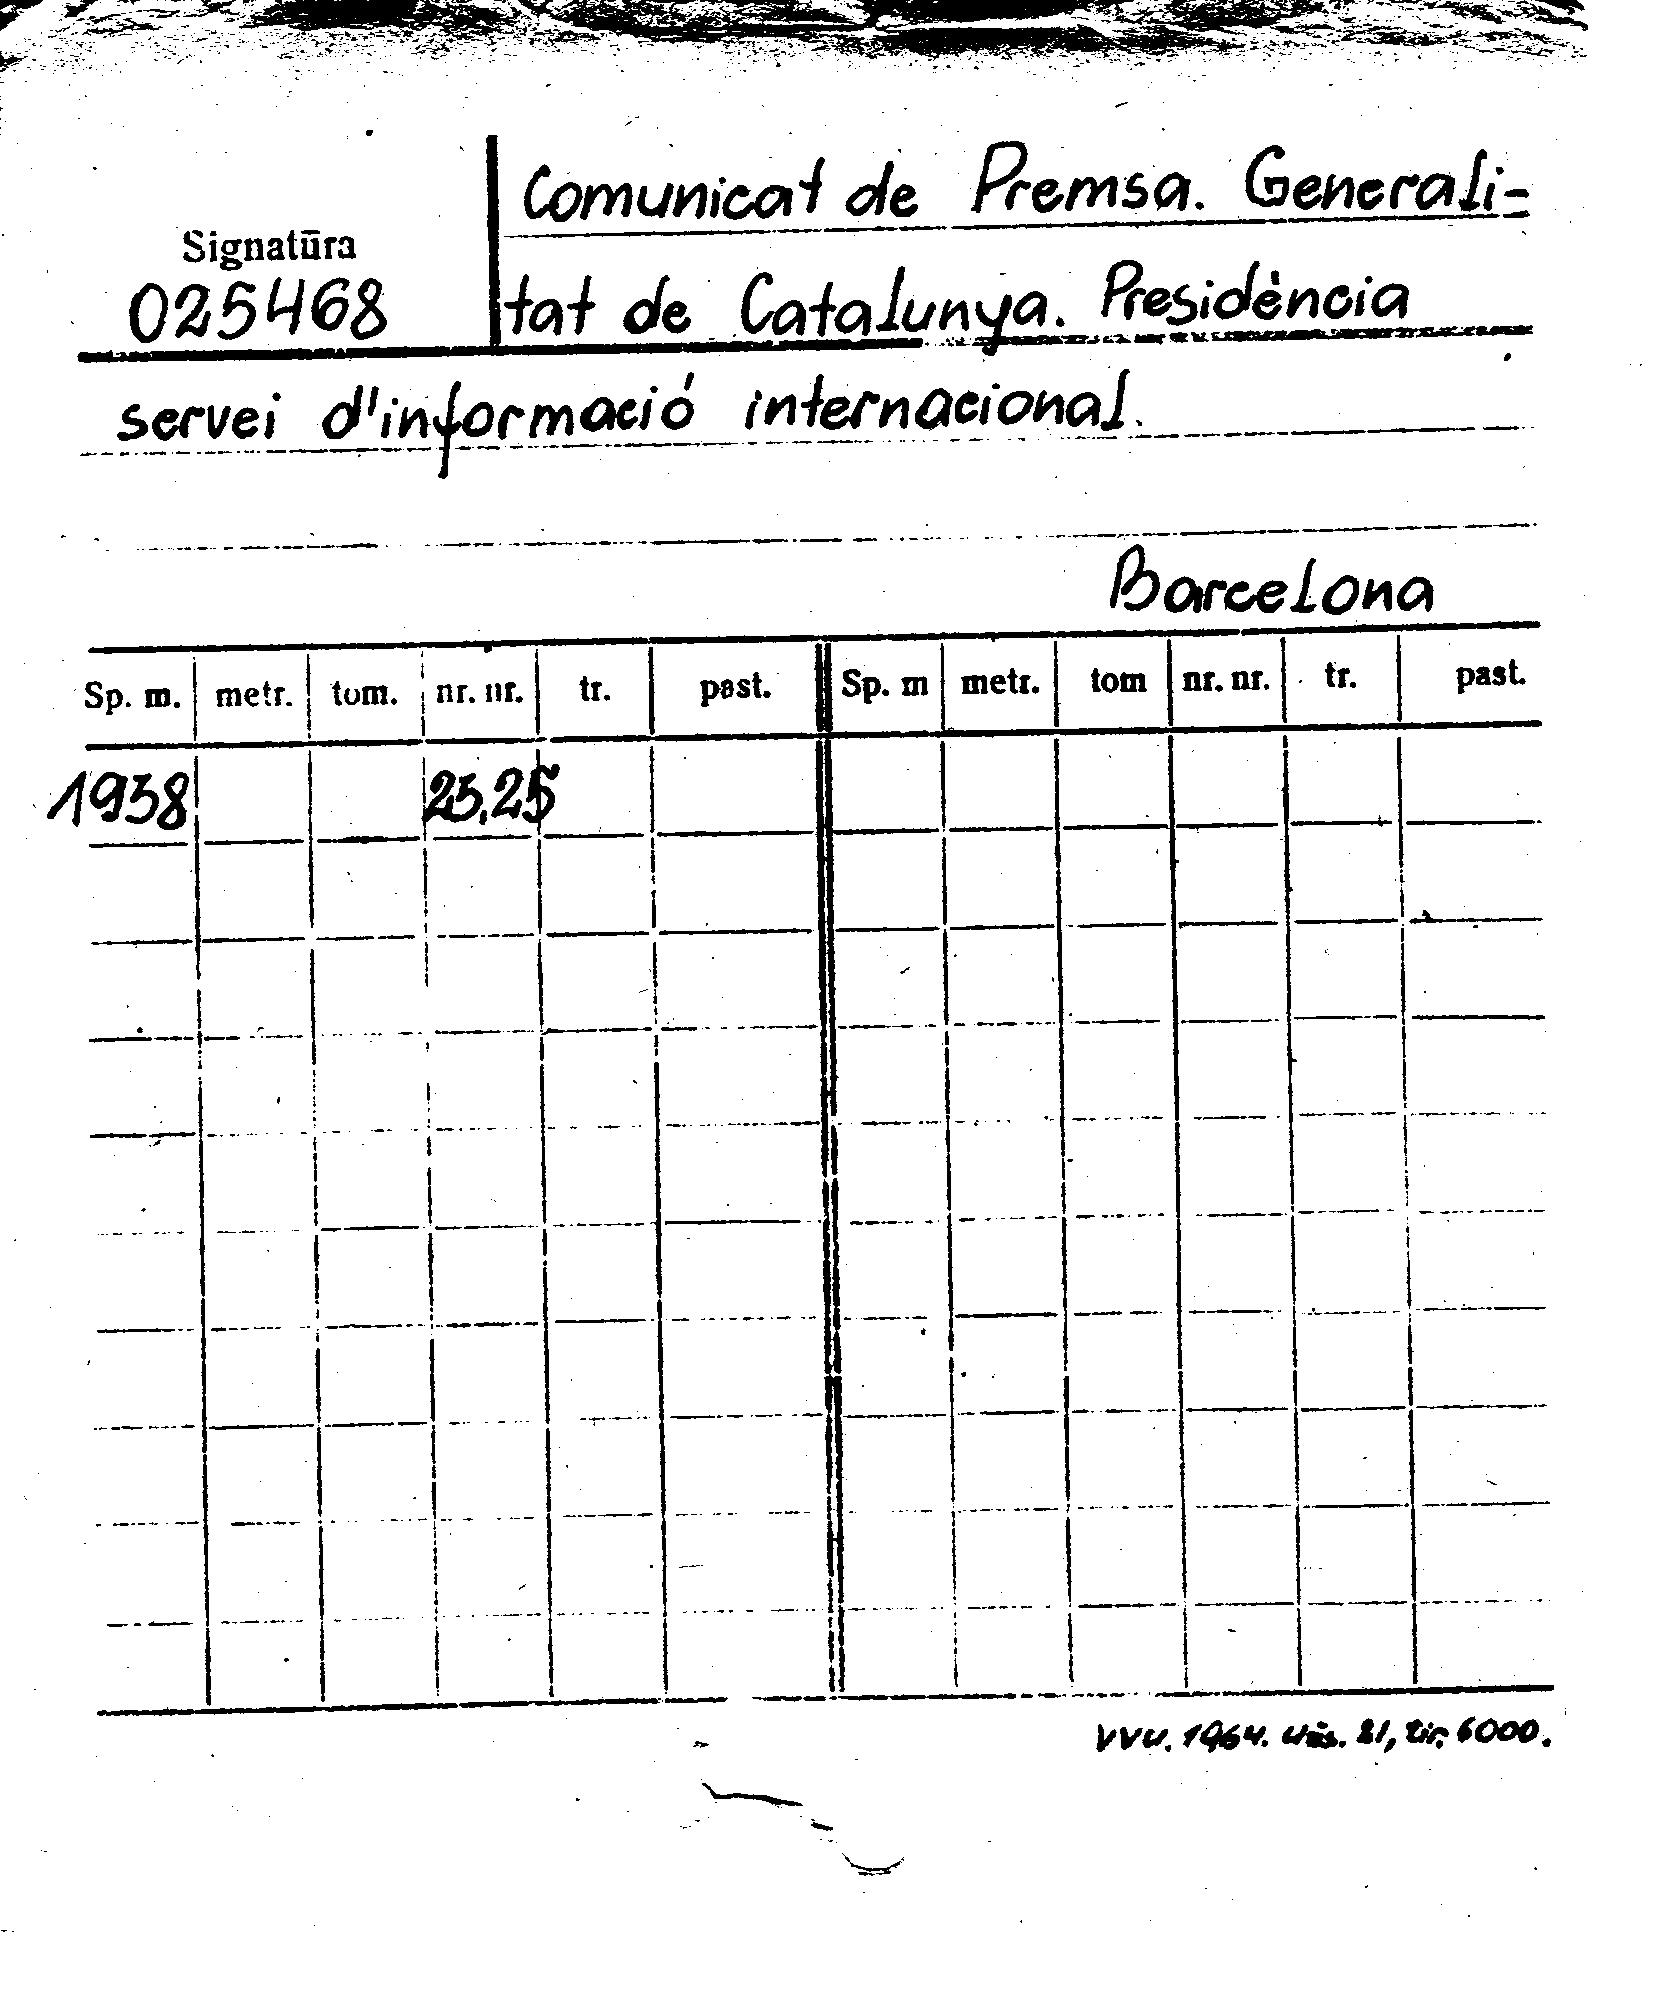 Comunicat de Premsa. Generali-
Signatūra
025468
tat de Catalunya. Presidència
servei d'informació internacional.
Barcelona
Sp. m. metr. tom. nr. nr. tr. past. Sp. m metr. tom nr. nr. tr. past.
1938 23.25
VVU. 1964. tir. 6000.